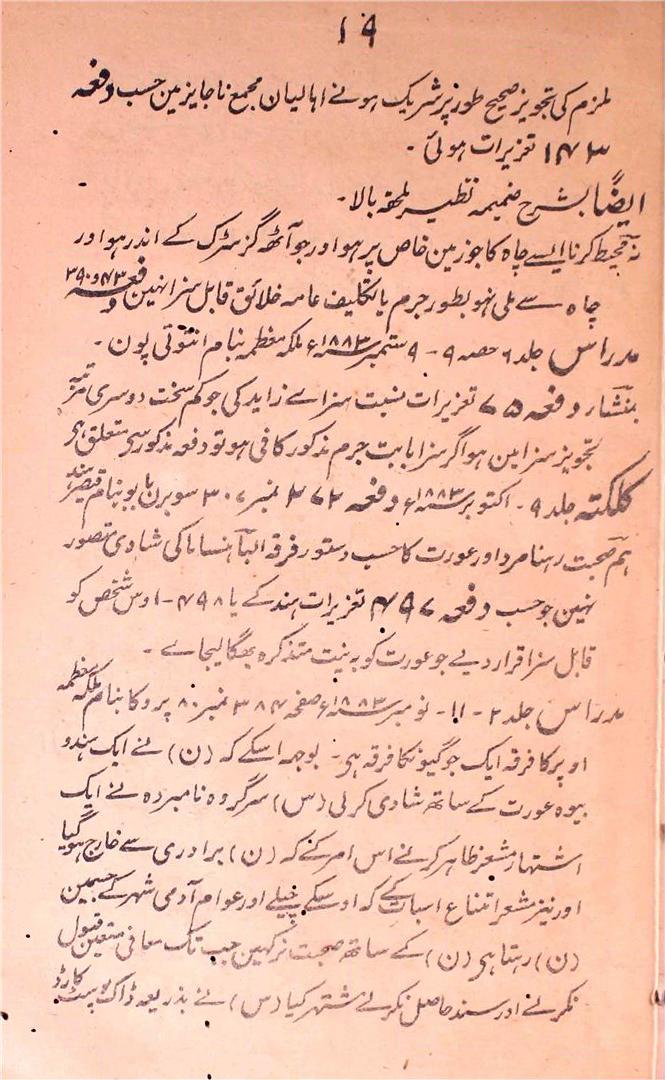 ۱۹
ملزم کی تجویز صحیح طور پر شریک ہونے اہالیان مجمع ناجایز مین حسب دفعہ
۱۴۳ تعزیرات ہوئی ۔
ایضًا بشرح ضمیمہ نظیر ملحقہ بالا ۔
نہ محیط کرنا ایسے چاہ کا جو زمین خاص پر ہو اور جو آٹھ گز سڑک کے اندر ہو اور
چاہ سے ملی نہو بطور جرم یا تکلیف عامہ خلائق قابل سزا نہین دفعہ
مدراس جلد ۶ حصہ ۹ - ۹ ستمبر ۱۸۸۳ء ملکہ معظمہ بنام انتونی پون ۔
بنشاء دفعہ ۷۵ تعزیرات نسبت سزا سے زاید کی جو کم سخت دوسری مرتبہ
تجویز سزا مین ہو اگر سزا بابت جرم مذکور کافی ہو تو دفعہ مذکور سی متعلق ہی
کلکتہ جلد ۹ - اکتوبر ۱۸۸۳ء دفعہ نمبر ۳۰۷ سوبرن بابو بنام قیصر ہند
ہم صحبت رہنا مرد اور عورت کا حسب دستور فرقہ کی شادی متصور
نہین جو حسب دفعہ ۴۹۷ تعزیرات ہند کے یا ۴۹۸ - اوس شخص کو
قابل سزا قرار دیے جو عورت کو بہ نیت متذکرہ بھگا لیجاے ۔
مدراس جلد ۲ - ۱۱ - نومبر ۱۸۸۳ء صفحہ ۳۸۴ نمبر ۸۰ پروکا بنام ملکہ معظمہ
اوپر کا فرقہ ایک جوگیونکا فرقہ ہی ۔ بوجہ اسکے کہ (ن) نے ایک ہندو
بیوہ عورت کے ساتھ شادی کر لی (س) سرگروہ نامبردہ نے ایک
اشتہار مشعر ظاہر کرنے اس امر کے کہ (ن) برادری سے خارج ہو گیا
اور نیز مشعر امتناع اسبات کے کہ اوسکے قبیلے اور عوام آدمی شہر کے جسمین
(ن) رہتا ہی (ن) کے ساتھ صحبت نرکھین جب تک معافی متعین قبول
نکرنے اور سند حاصل نکرنے مشتہر کیا (س) نے بذریعہ ڈاک پوسٹ کارڈ